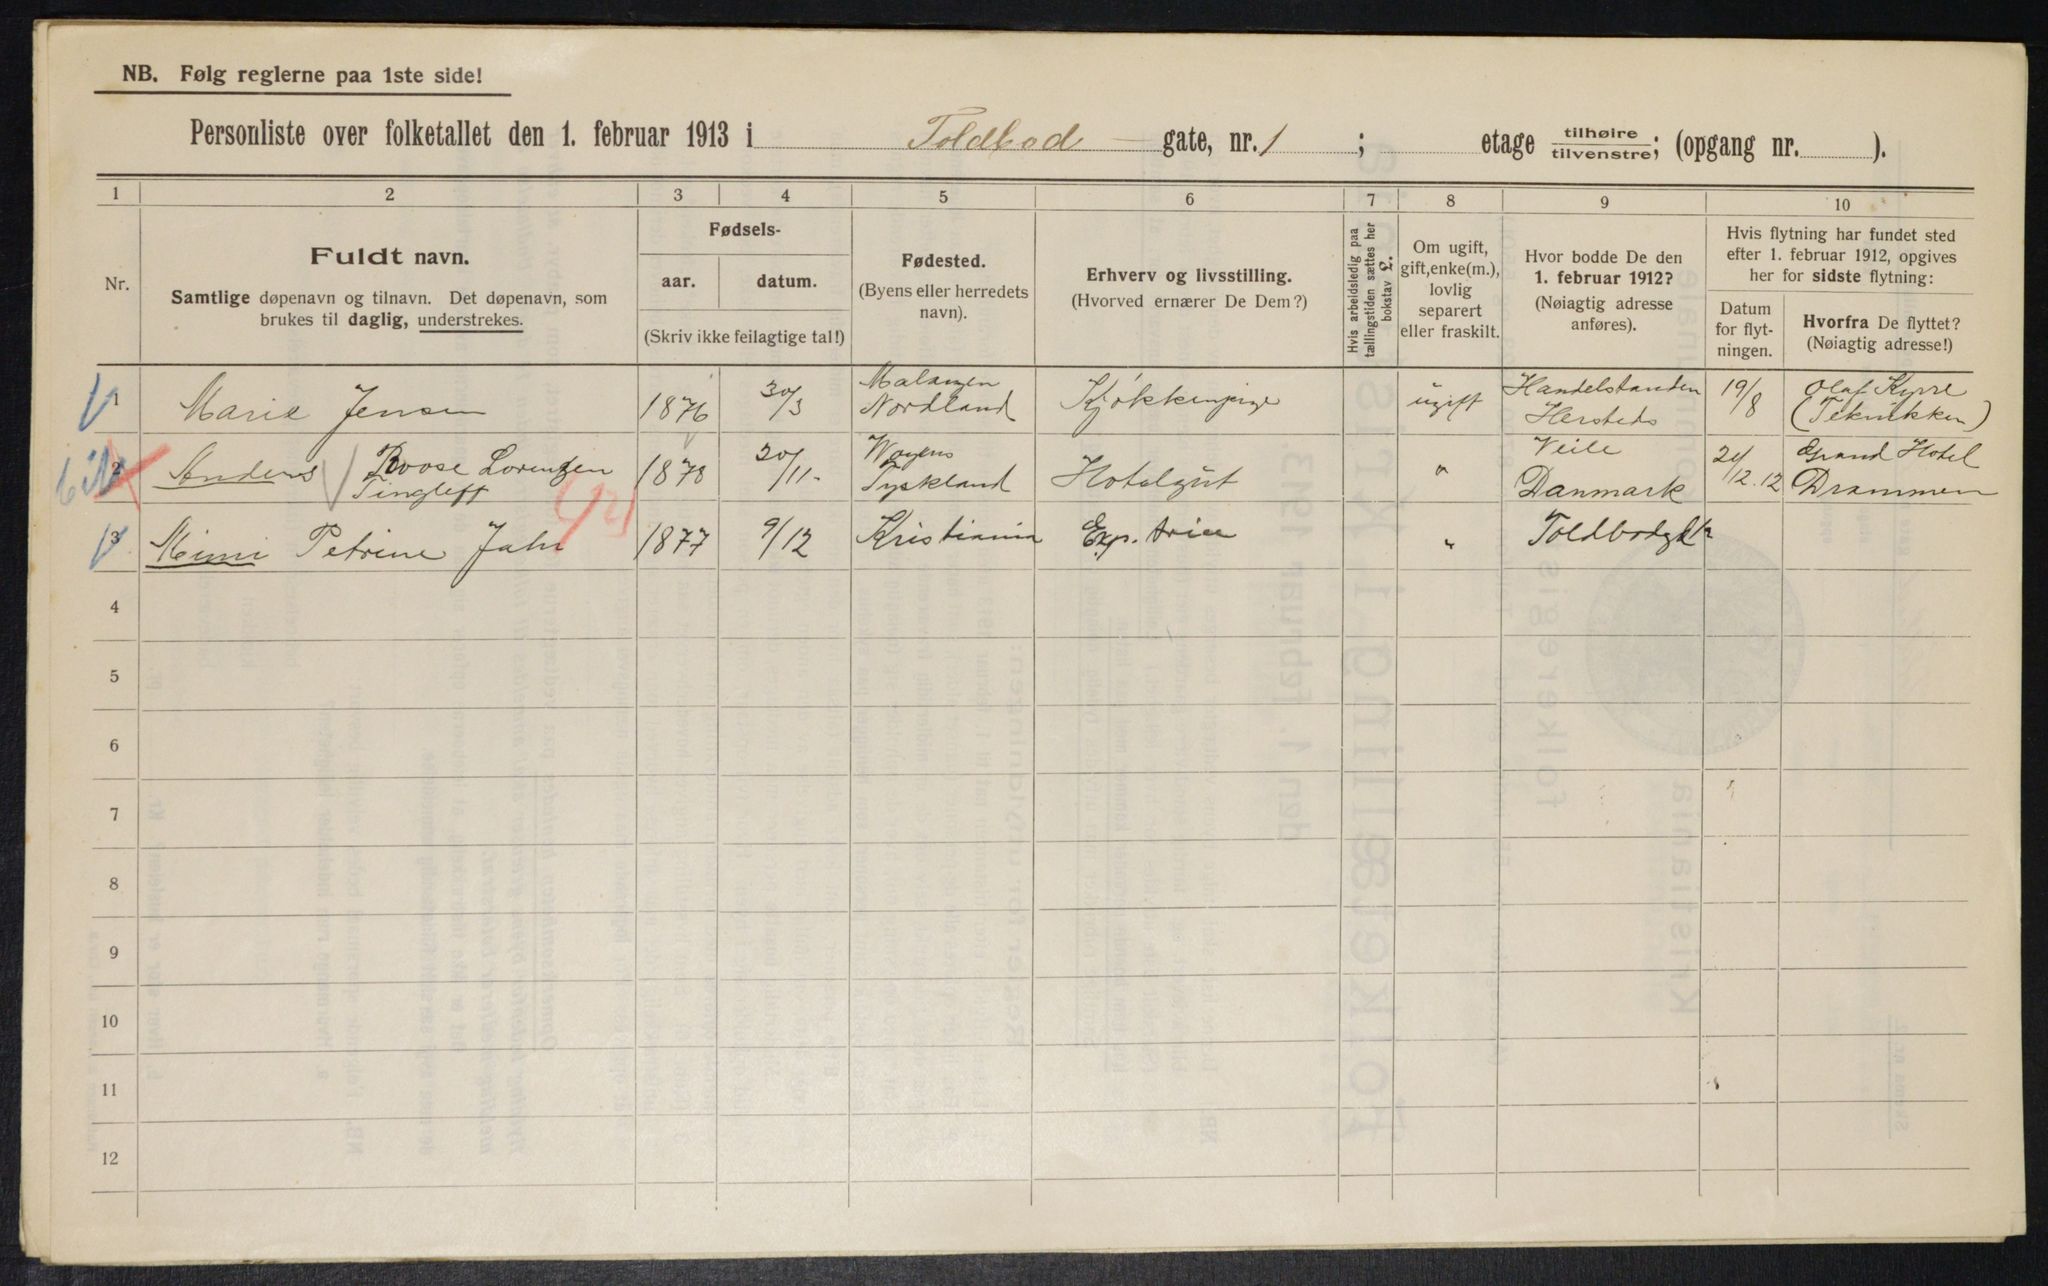 NB. Følg reglerne paa 1ste side!
Personliste over folketallet den 1. februar 1913 i Toldbod gate, nr. 1 ; etage tilhøire/tilvenstre; (opgang nr. ).
1 2 3 4 5 6 7 8 9 10
Nr.
Fuldt navn.
Samtlige døpenavn og tilnavn. Det døpenavn, som
brukes til daglig, understrekes.
Fødsels-
aar. datum.
(Skriv ikke feilagtige tal!)
Fødested.
(Byens eller herredets
navn).
Erhverv og livsstilling.
(Hvorved ernærer De Dem?)
Hvis arbeidsledig paa
tællingstiden sættes her
bokstav L.
Om ugift,
gift, enke(m.),
lovlig
separert
eller fraskilt.
Hvor bodde De den
1. februar 1912?
(Nøiagtig adresse
anføres).
Hvis flytning har fundet sted
efter 1. februar 1912, opgives
her for sidste flytning:
Datum
for flyt-
ningen.
Hvorfra De flyttet?
(Nøiagtig adresse!)
1 Marie Jensen 1876 30/3 Malangen Nordland ugift Handelstanden 19/8 Olaf Kyrre
2 Anders Roose Lorenzen Tingleff 1878 20/11 Woyens Tyskland " Veile Danmark 21/12.12 Grand Hotel Drammen
3 Mimi Petrine Jahr 1877 9/12 Kristiania "
4
5
6
7
8
9
10
11
12